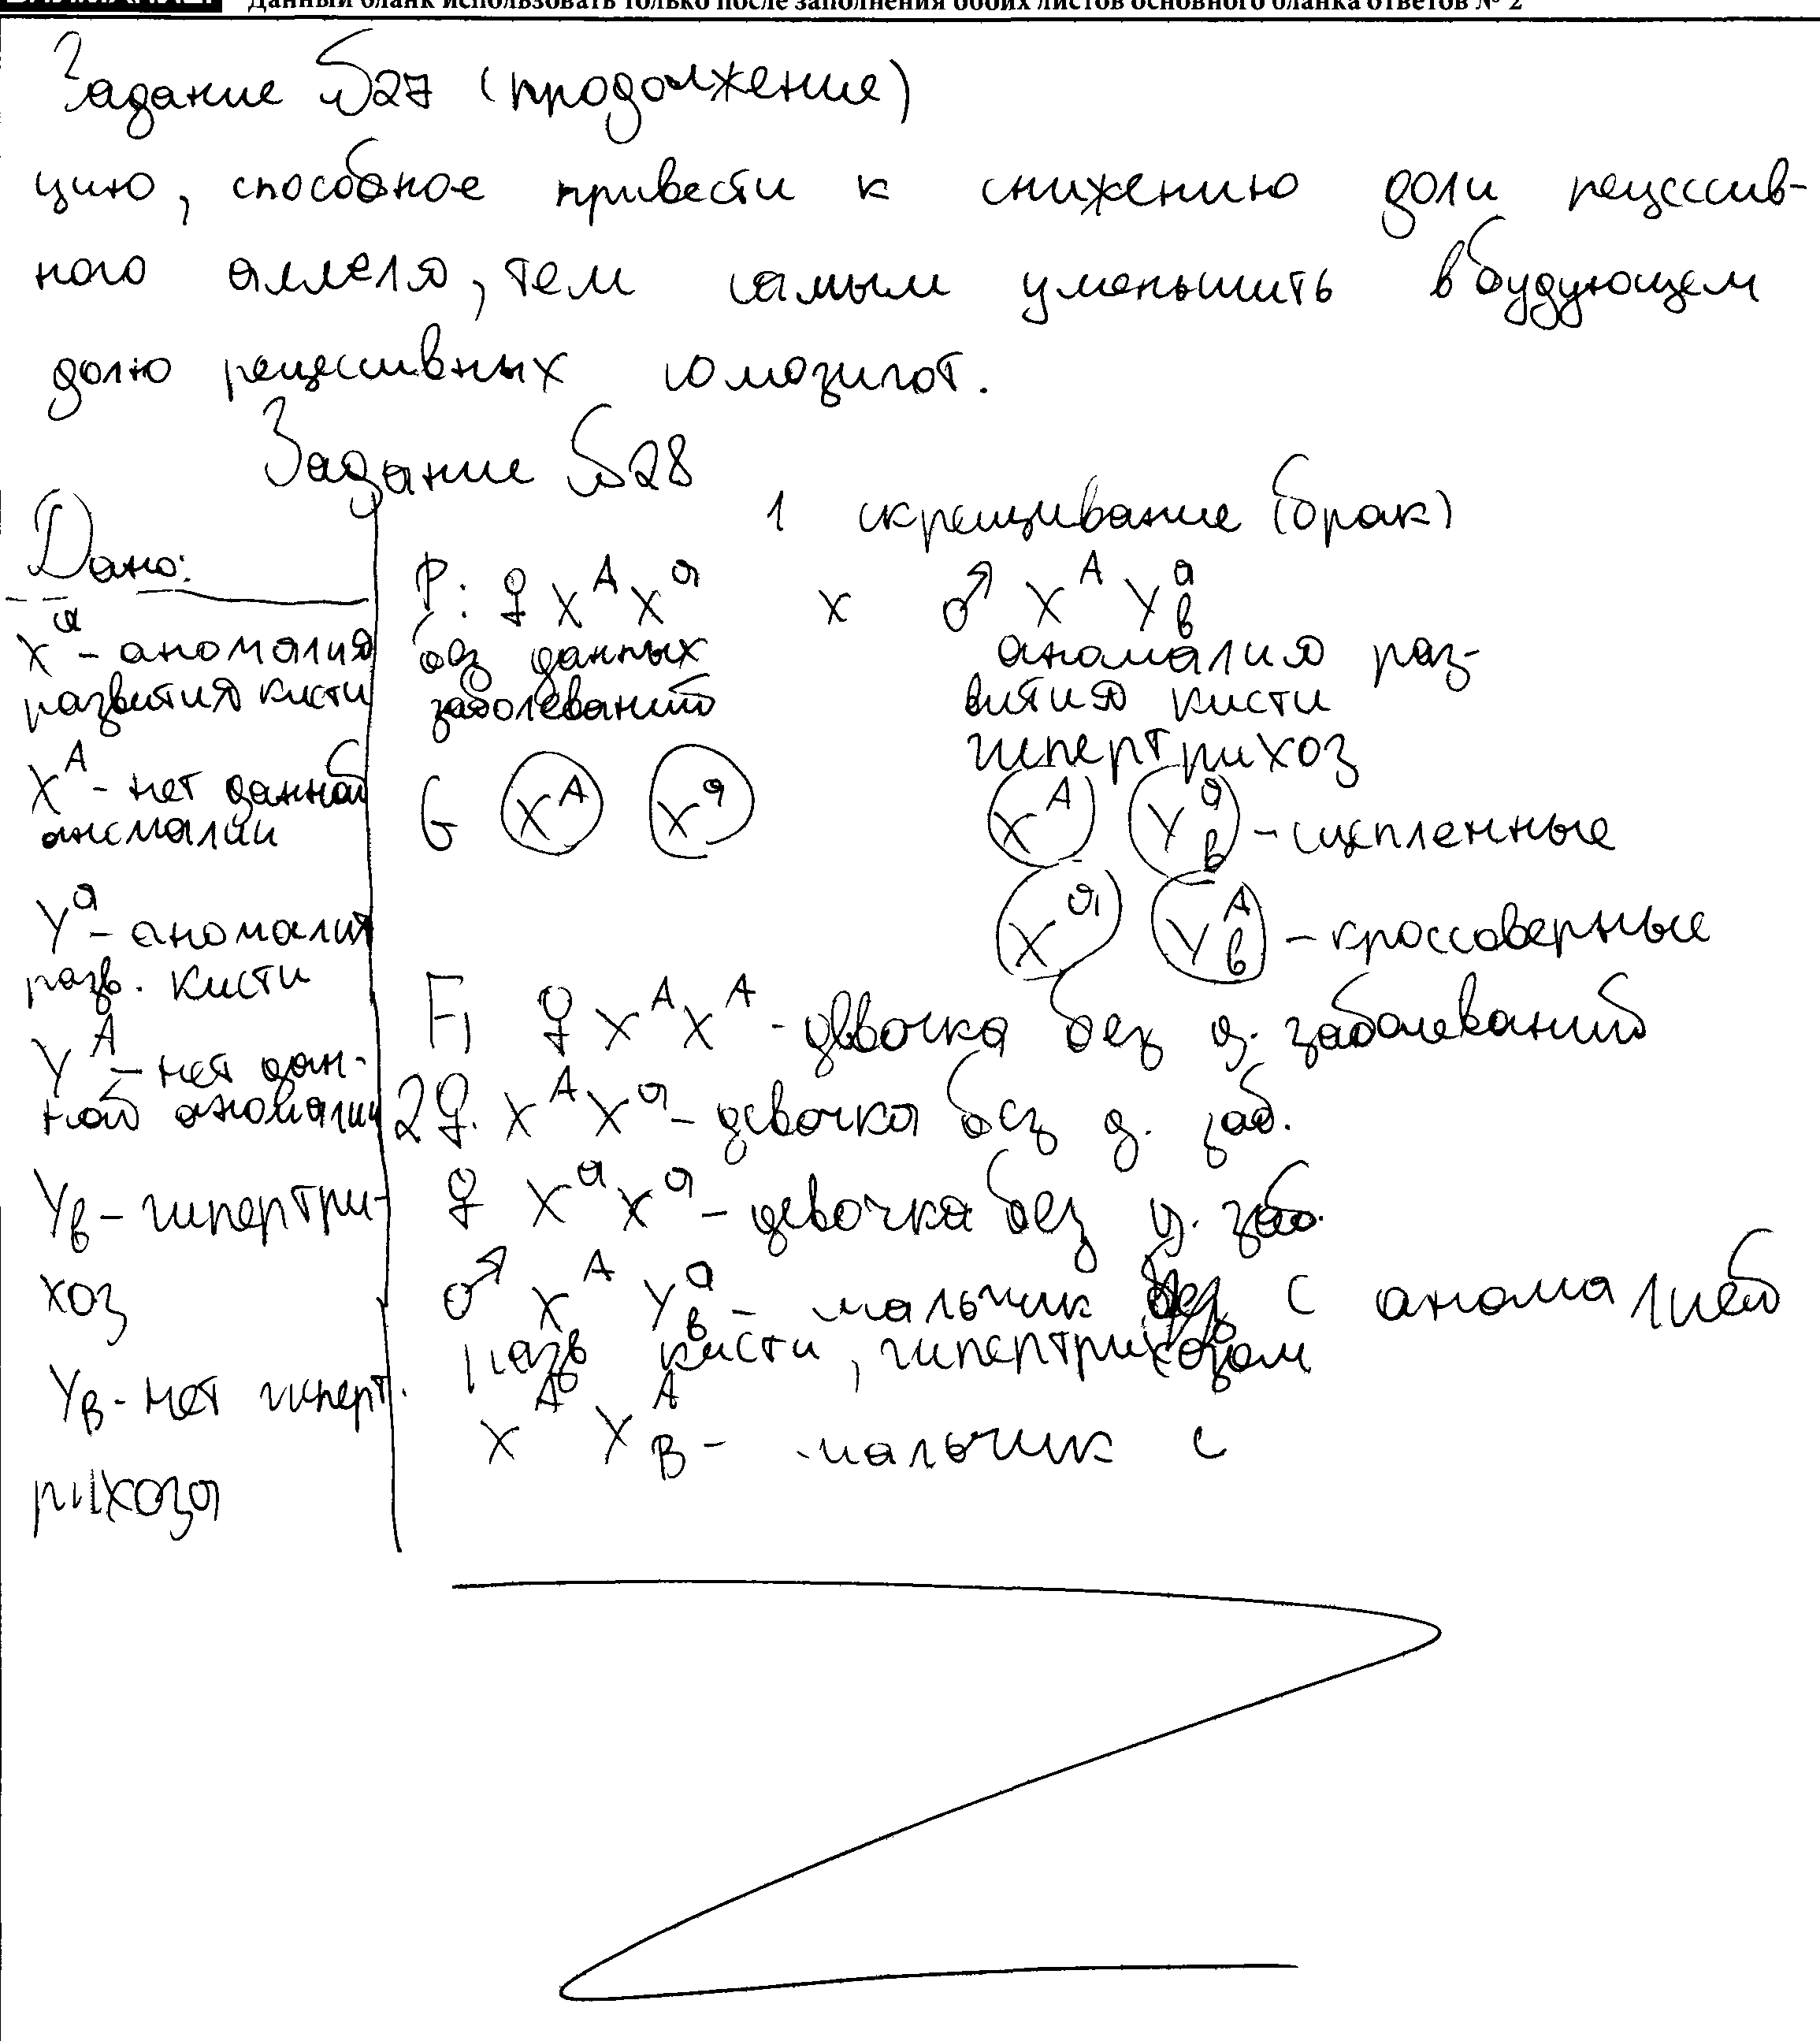 Данный бланк использовать только после заполнения обоих листов основного бланка ответов № 2
Задание №27 (продолжение)
цию, способное привести к снижению доли рецессив-
ного аллеля, тем самым уменьшить в будующем
долю рецессивных гомозигот.
Задание №28
Дано:
X^a - аномалия
развития кисти
X^A - нет данной
аномалии
Y^a - аномалия
разв. кисти
Y^A - нет дан-
ной аномалии
Y_b - гипертри-
хоз
Y_B - нет гиперт
рихоза
1 скрещивание (брак)
P: ♀ X^A X^a x ♂ X^A Y^a_b
без данных аномалия раз-
заболеваний вития кисти
гипертрихоз
G X^A X^a X^A Y^a_b - сцепленные
X^a Y^A_b - кроссоверные
F1 ♀ X^A X^A - девочка без д. заболеваний
2♀. X^A X^a - девочка без д. заб.
♀ X^a X^a - девочка без д. заб.
♂ X^A Y^a_b - мальчик с аномалией
разв кисти, гипертрихозом
X^A Y^A_B - мальчик с